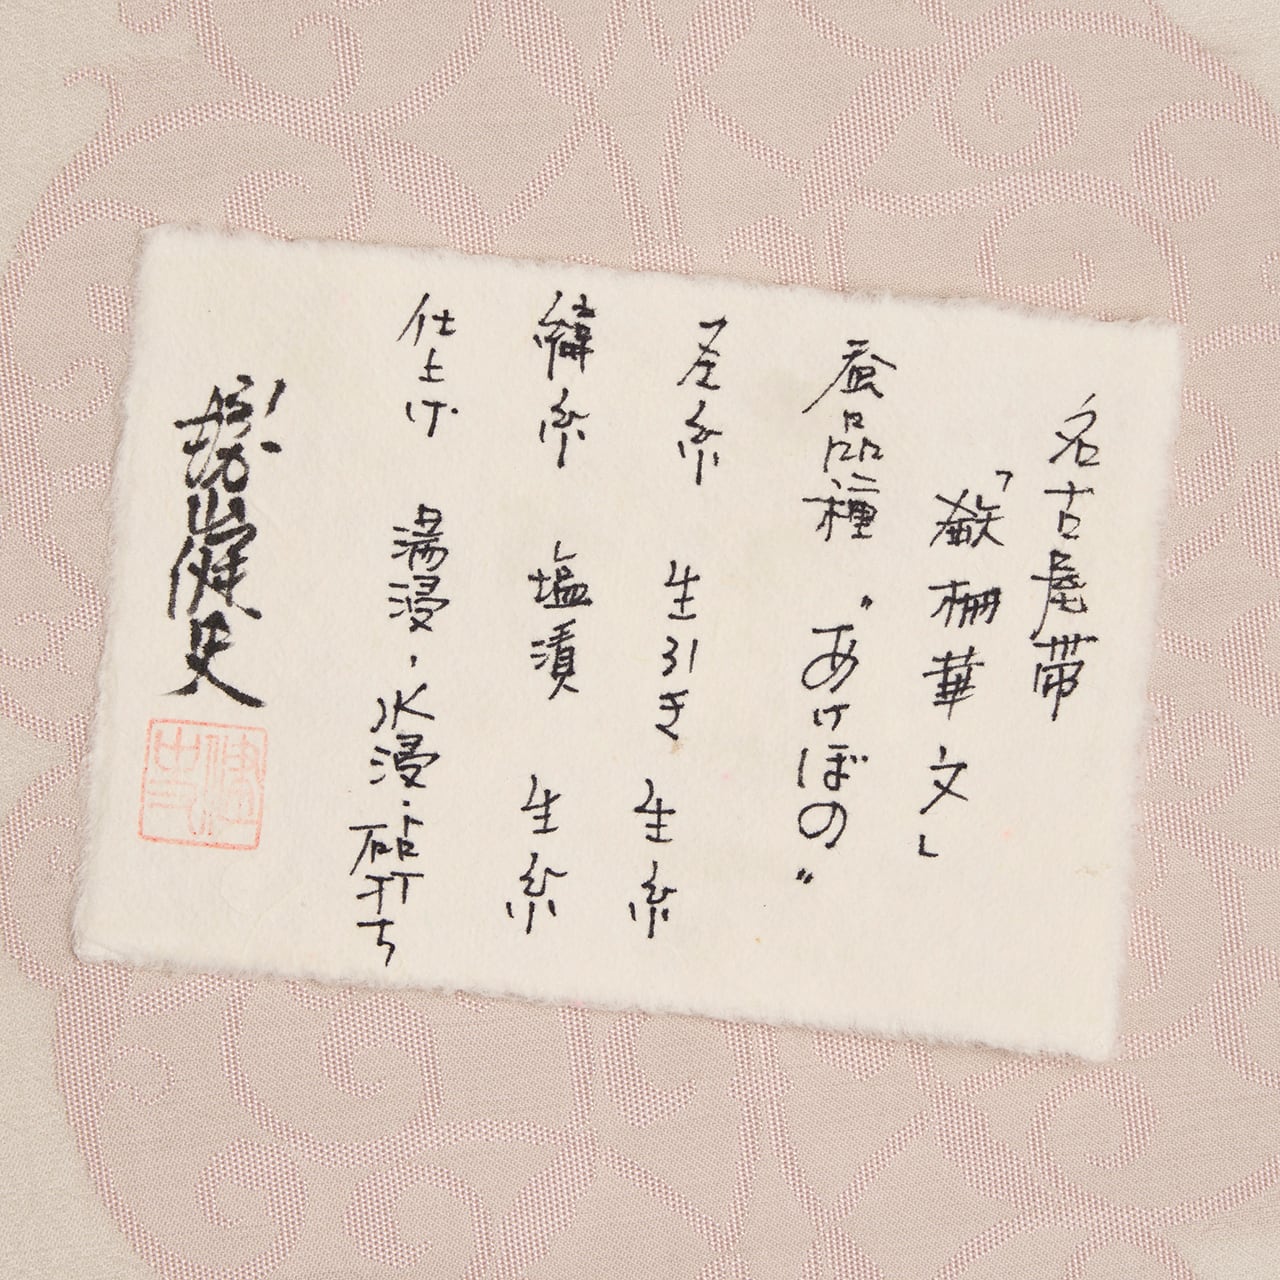 名古屋帯
「鉄柵華文」
蚕品種 "あけぼの"
経糸 生引き 生糸
緯糸 塩漬 生糸
仕上げ 湯浸・水浸・砧打ち
勝山健史
健史